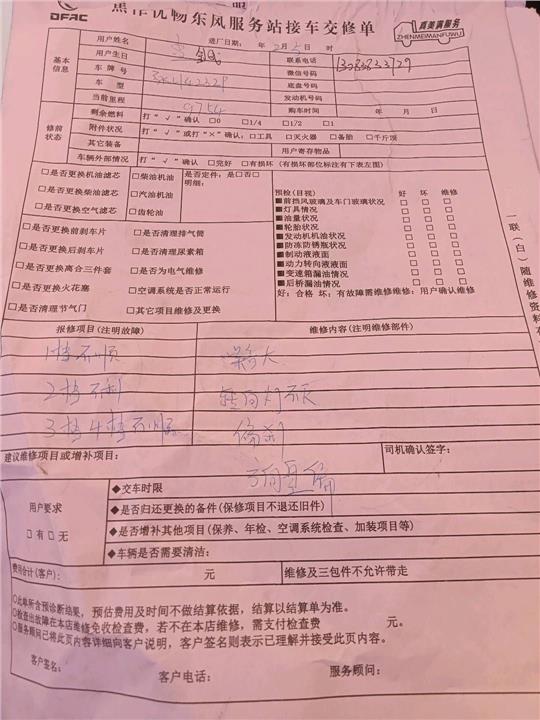 焦作优畅东风服务站接车交修单
DFAC
真美满服务
ZHENMEIMANFUWU
基本信息
用户姓名 进厂日期: 年 2月5日 时
用户生日 联系电话
车牌号 微信号码
车 型 底盘号码
当前里程 9754 发动机号码
购车时间 年 月 日
修前状态
剩余燃料 打“√”确认 □0 □1/4 □1/2 □1
附件状况 打“√”或打“×”确认:□工具 □灭火器 □备胎 □千斤顶
其它装备 用户寄存物品
车辆外部情况 打“√”确认 □完好 □有损坏 (有损坏部位标注有下表左图)
□是否更换机油滤芯 □柴油机油 是否定件: 是□否□
□是否更换柴油滤芯 □汽油机油 明细:
□是否更换空气滤芯 □齿轮油
□是否更换前刹车片 □是否清理排气筒
□是否更换后刹车片 □是否清理尿素箱
□是否更换离合三件套 □是否为电气维修
□是否更换火花塞 □空调系统是否正常运行
□是否清理节气门 □其它项目维修及更换
预检(目视) 好 坏 维修
■前挡风玻璃及车门玻璃状况 □ □ □
■灯具情况 □ □ □
■油量状况 □ □ □
■轮胎状况 □ □ □
■发动机机油状况 □ □ □
■防冻防锈瓶状况 □ □ □
■制动液液面 □ □ □
■动力转向液液面 □ □ □
■变速箱漏油情况 □ □ □
■后桥漏油情况 □ □ □
好: 合格 坏: 有故障需维修维修: 用户确认维修
一联(白)随维修资料
报修项目(注明故障) 维修内容(注明维修部件)
1档不顺
2档不利 转向灯不灭
3档4档不顺 偏刹
建议维修项目或增补项目: 司机确认签字:
方向量偏
用户要求
□有□无
◆交车时限
◆是否归还更换的备件(保修项目不退还旧件)
◆是否增补其他项目(保养、年检、空调系统检查、加装项目等)
◆车辆是否需要清洁:
费用合计(客户): 元 维修及三包件不允许带走
○此单所含预诊断结果, 预估费用及时间不做结算依据, 结算以结算单为准。
○检查出故障在本店维修免收检查费, 若不在本店维修, 需支付检查费 元。
○服务顾问已将此页内容详细向客户说明, 客户签名则表示已理解并接受此页内容。
客户签名: 客户电话: 服务顾问: